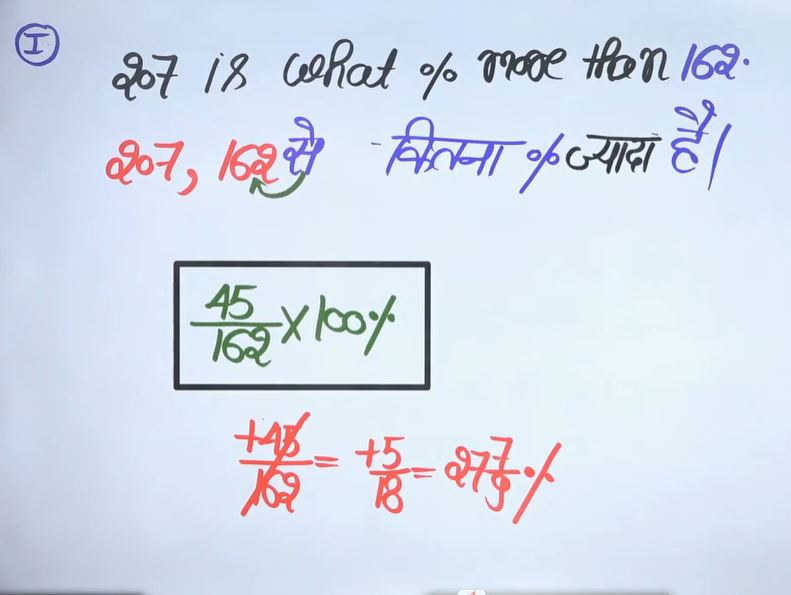 I
207 is what % more than 162.
207, 162 से कितना % ज्यादा है।
45/162 × 100%
+45/162 = +5/18 = 27 7/9 %